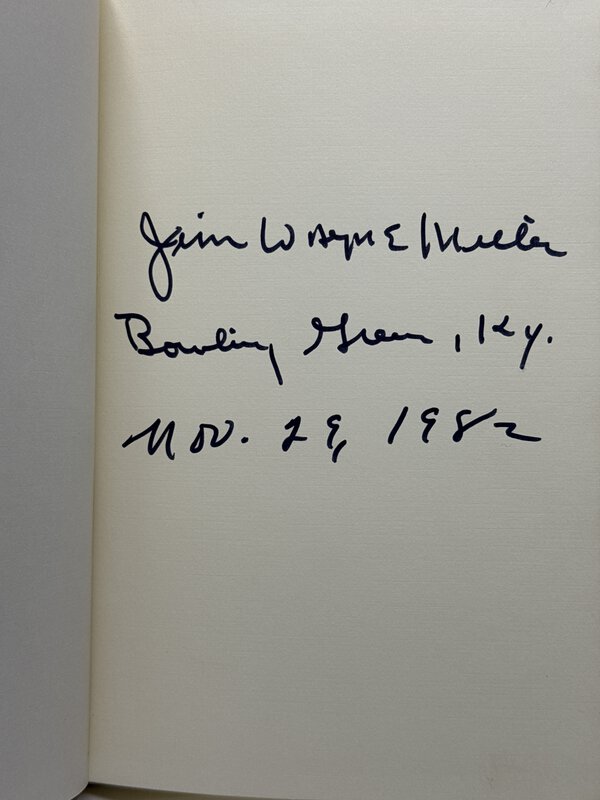 Jim Wayne Miller
Bowling Green, Ky.
Nov. 29, 1982